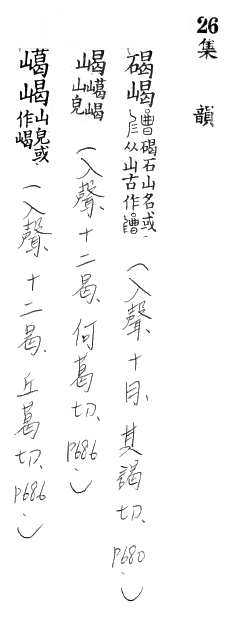 26 集韻
碣嵑 碣石山名或从山古作 (入聲、十月、其謁切、p680.)
嵑 山皃 (入聲、十二曷、何葛切、p686.)
嵑 山皃或作 (入聲、十二曷、丘葛切、p686.)